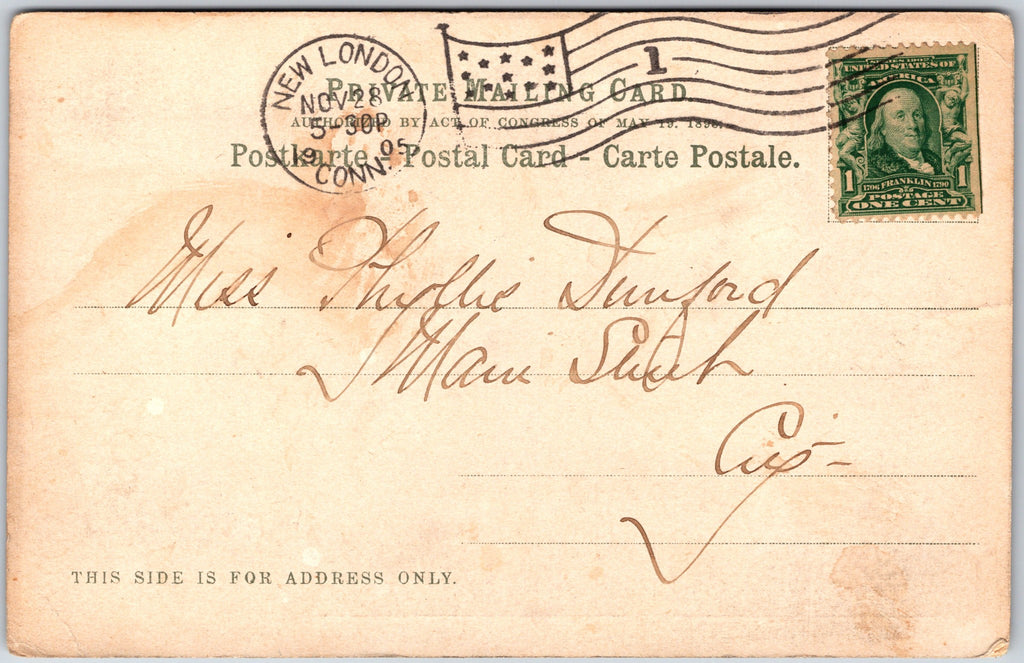 NEW LONDON
NOV 28
5-30P
19 05
CONN.
1
PRIVATE MAILING CARD
AUTHORIZED BY ACT OF CONGRESS OF MAY 19. 1898.
Postkarte - Postal Card - Carte Postale.
SERIES 1902
UNITED STATES OF
AMERICA
1706 FRANKLIN 1790
1 1
POSTAGE
ONE CENT
Miss Phyllis Dunford
Main Street
City-
THIS SIDE IS FOR ADDRESS ONLY.